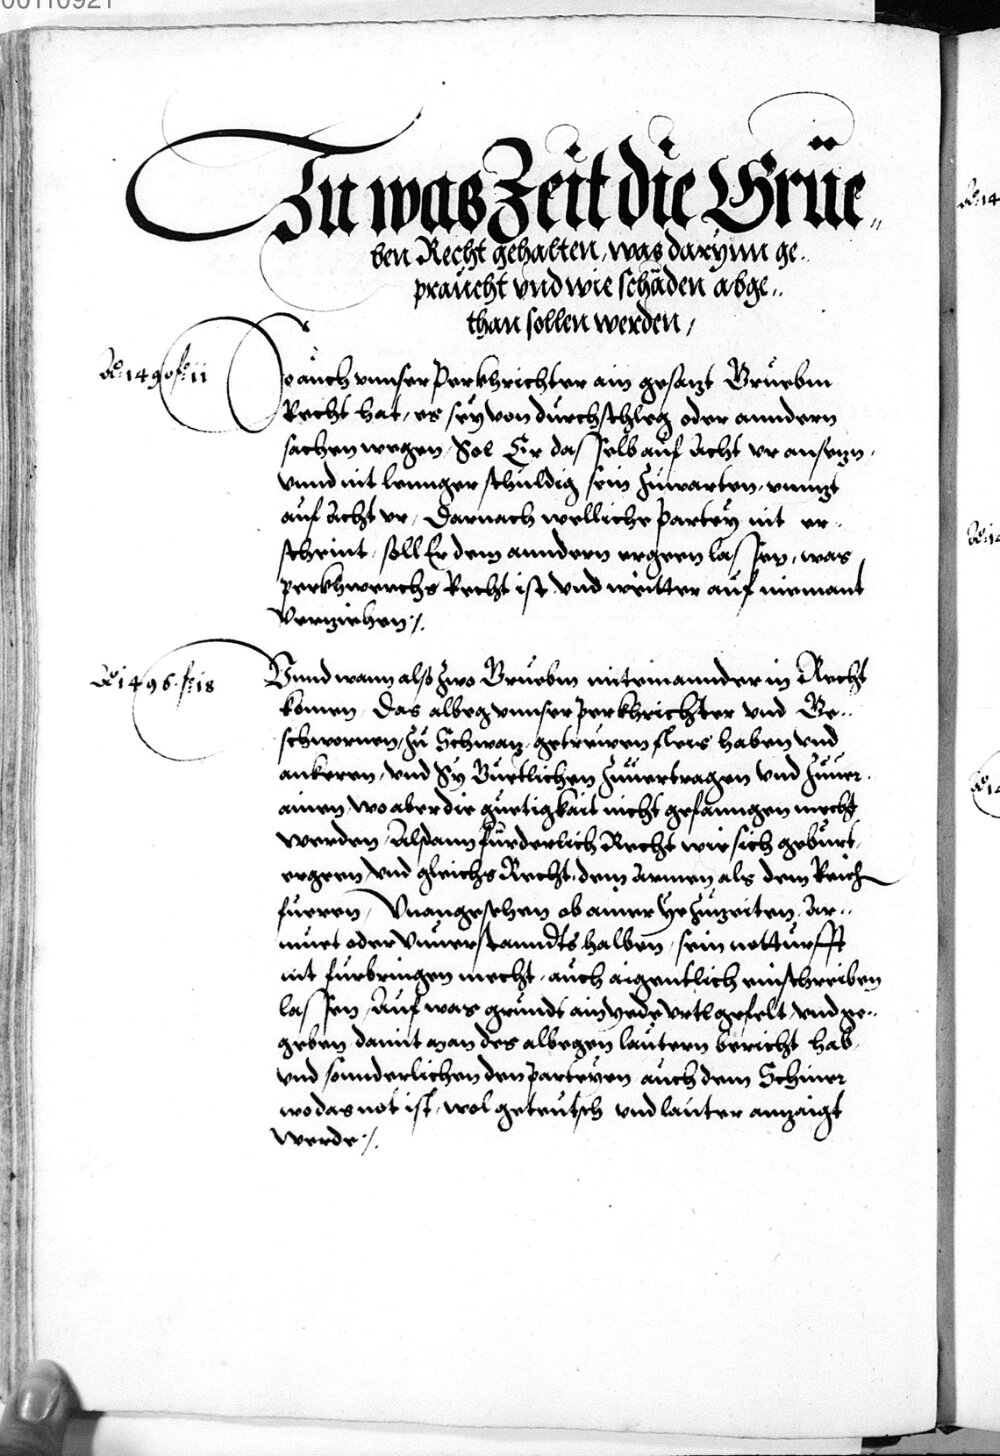 00110921
Zu was Zeit die Grüe„
ben Recht gehalten, was darynn ge„
praucht vnd wie schäden abge„
than sollen werden,
Ao. 1490 fo. 11
So auch vnnser Perkhrichter ain gesatzt Gruebm
Recht hat, es sey von durchschleg oder anndern
sachen wegen, Sol Er dasselb auf Acht vr ansetzn,
vnnd nit lennger schuldig sein zuwarten, vnntzt
auf Acht vr, Darnach welliche Partey nit er„
scheint, soll Er dem anndern ergeen lassen, was
perkhwerchs Recht ist vnd weitter auf niemant
Vertziehen /.
Ao. 1496 fo. 18
Vnnd wann also zwo Gruebm miteinannder in Recht
komen, Das albeg vnnser Perkhrichter vnd Ge„
schwornen, zu Schwatz, getrewen fleis haben vnd
ankeren, vnd Sy Guetlichen zuuertragen vnd zuuer„
ainen, wo aber die guetigkait nicht gefanngen mecht
werden, Alsdann fürderlich Recht wie sich geburt,
ergeen, vnd gleichs Recht, dem Armen als dem Reich
fueren, Vnangesehen ob ainer ye zuzeiten, Ar„
muet oder Vnuerstanndts halben, sein notturfft
nit furbringen mecht, auch aigentlich einschreiben
lassen, Auf was grundt ain yede vrtl gefelt, vnd ge„
geben, damit man des albegen lautern bericht hab,
vnd sonnderlichen den Parteyen auch dem Schiner
wo das not ist, wol geteutsch vnd lauter antzaigt
werde /.